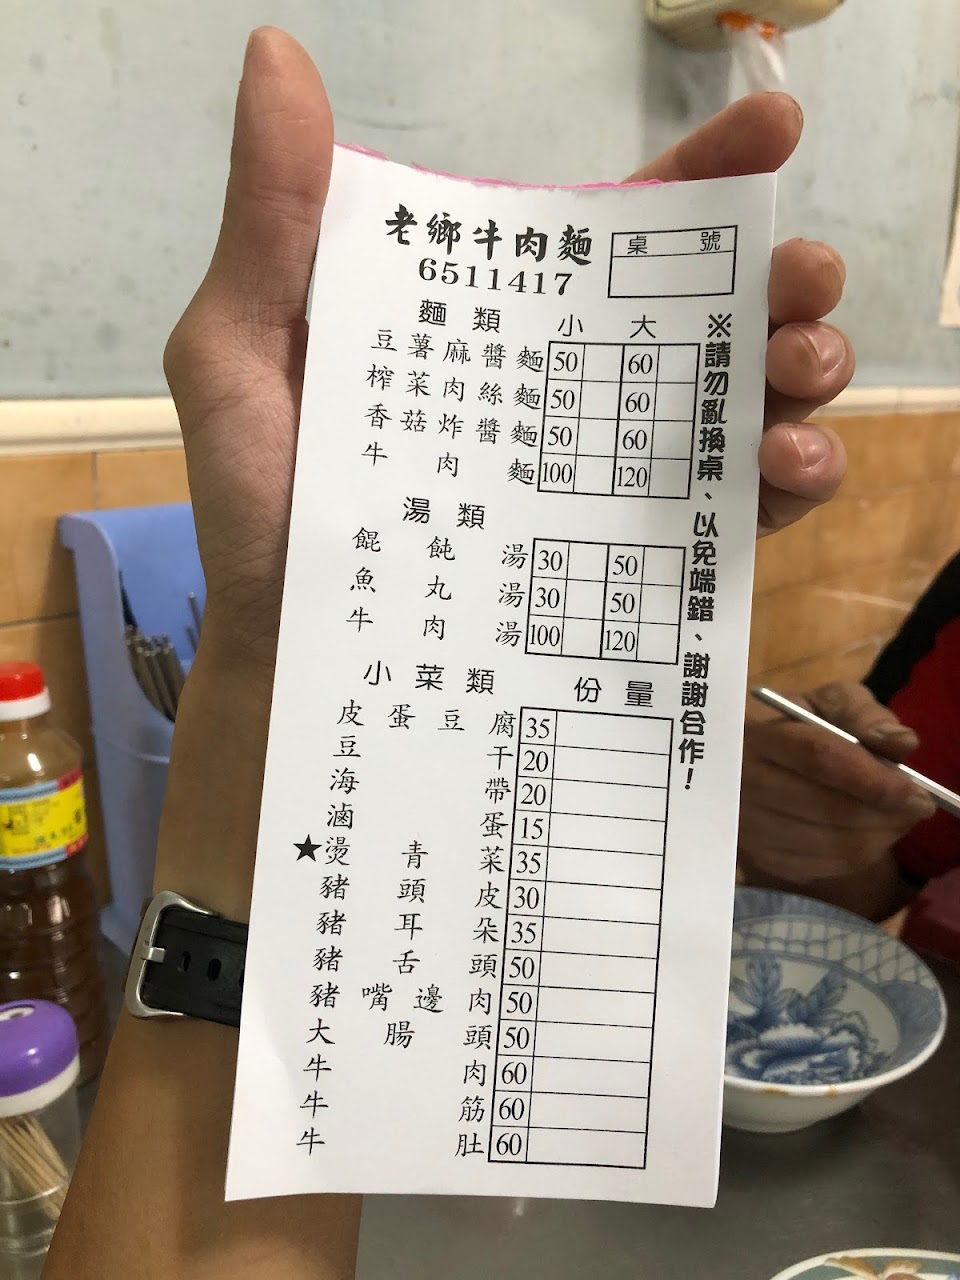 老鄉牛肉麵
6511417
桌號
麵類 小 大
豆薯麻醬麵 50 60
榨菜肉絲麵 50 60
香菇炸醬麵 50 60
牛肉麵 100 120
湯類
餛飩湯 30 50
魚丸湯 30 50
牛肉湯 100 120
小菜類 份量
皮蛋豆腐 35
豆干 20
海帶 20
滷蛋 15
★燙青菜 35
豬頭皮 30
豬耳朵 35
豬舌頭 50
豬嘴邊肉 50
大腸頭 50
牛肉 60
牛筋 60
牛肚 60
※請勿亂換桌、以免端錯、謝謝合作！